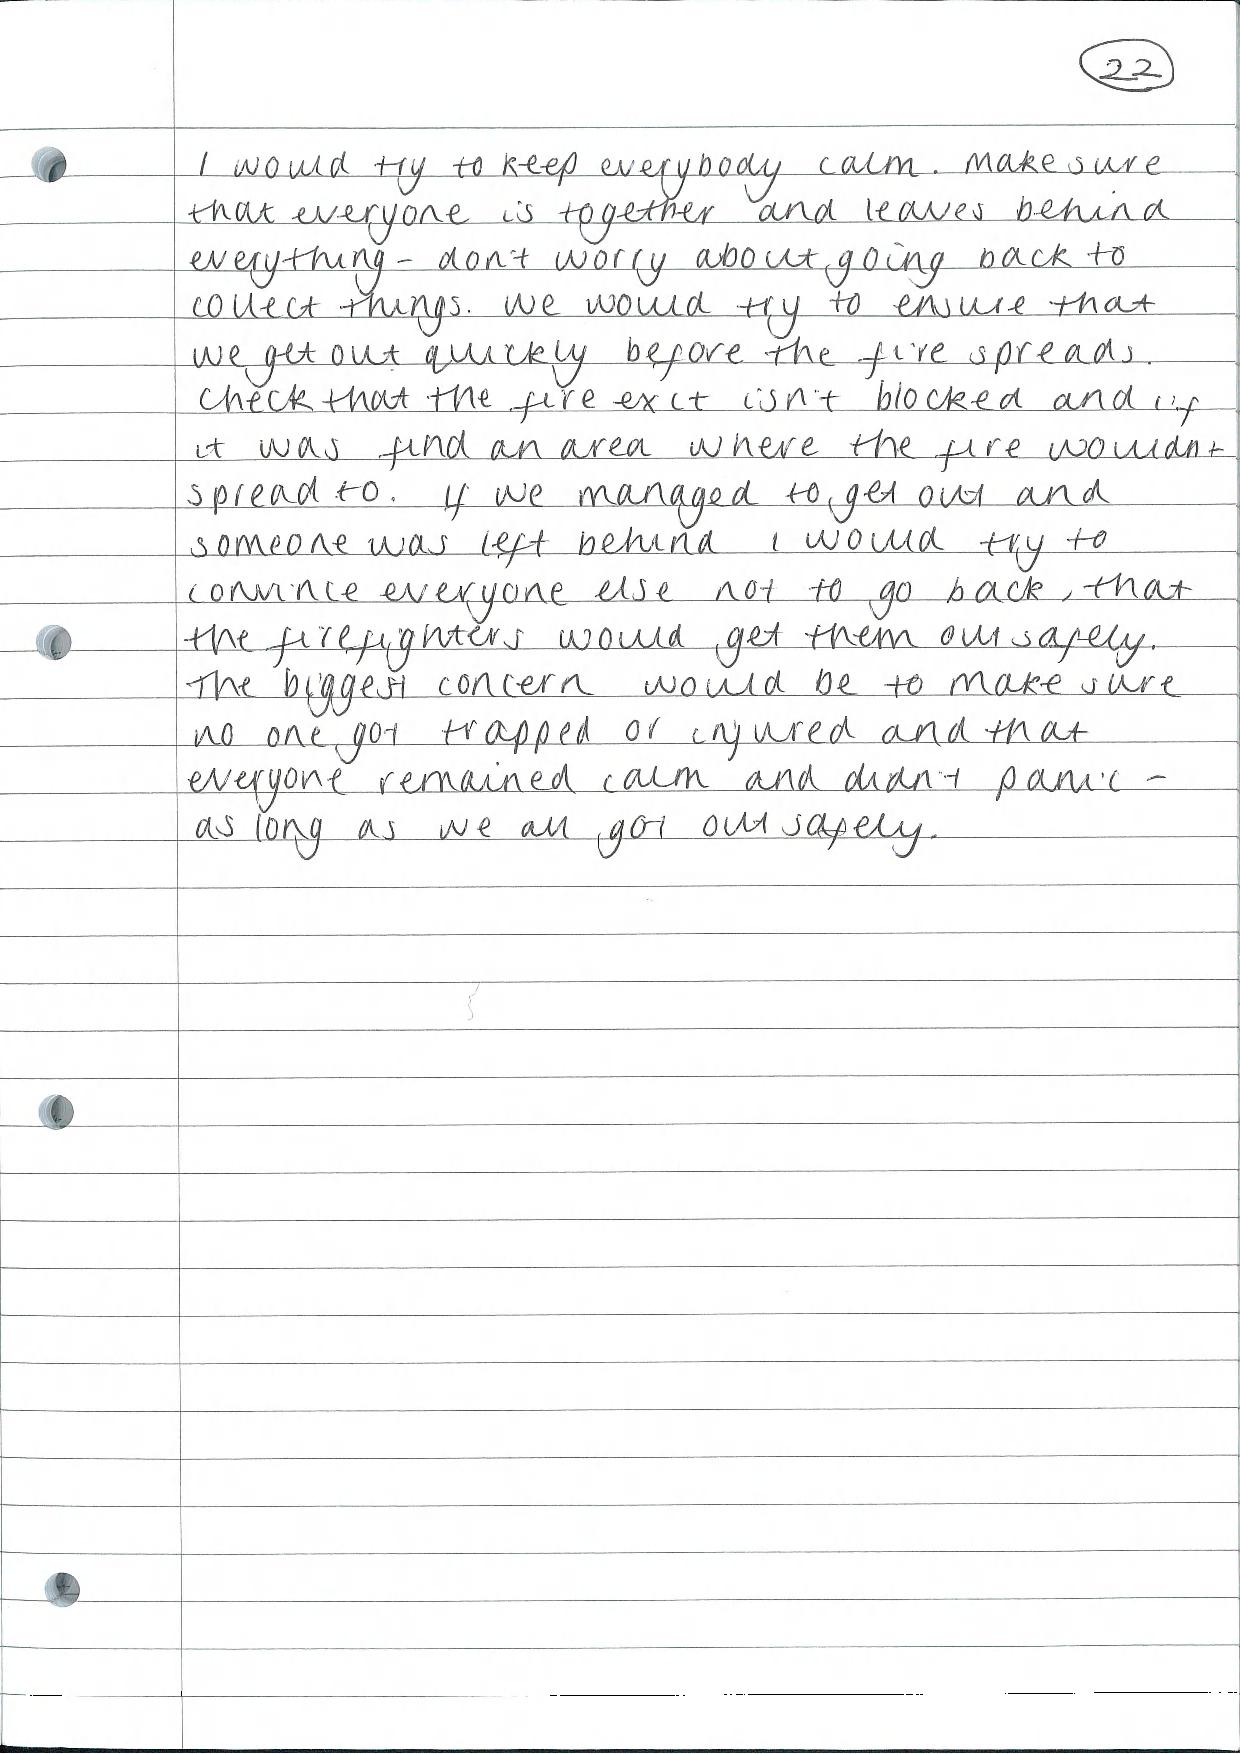 22
I would try to keep everybody calm. Make sure
that everyone is together and leaves behind
everything - don't worry about going back to
collect things. We would try to ensure that
we get out quickly before the fire spreads.
Check that the fire exit isn't blocked and if
it was find an area where the fire wouldn't
spread to. If we managed to get out and
someone was left behind I would try to
convince everyone else not to go back, that
the firefighters would get them out safely.
The biggest concern would be to make sure
no one got trapped or injured and that
everyone remained calm and didn't panic -
as long as we all got out safely.